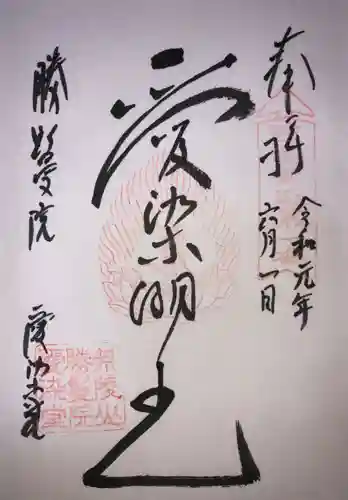 奉拝
令和元年
六月一日
愛染明王
勝鬘院
愛染堂
荊陵山
勝鬘院
愛染堂